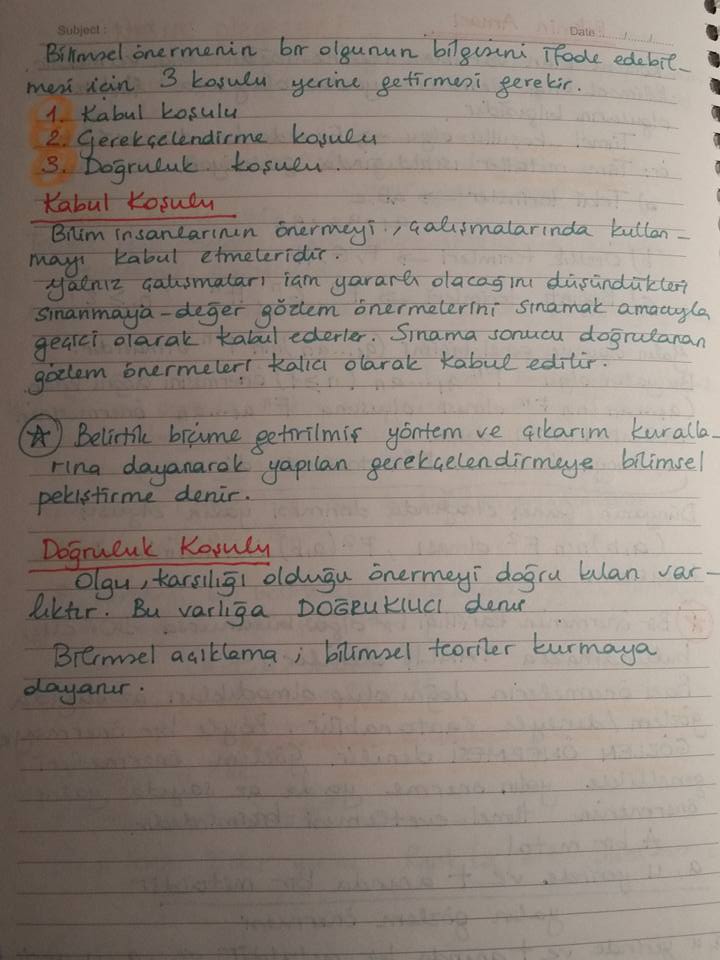 Subject :
Date : ....../....../......
Bilimsel önermenin bir olgunun bilgisini ifade edebil-
mesi için 3 koşulu yerine getirmesi gerekir.
1. Kabul koşulu
2. Gerekçelendirme koşulu
3. Doğruluk koşulu.
Kabul Koşulu
Bilim insanlarının önermeyi, çalışmalarında kullan-
mayı kabul etmeleridir.
Yalnız çalışmaları için yararlı olacağını düşündükleri
sınanmaya-değer gözlem önermelerini sınamak amacıyla
geçici olarak kabul ederler. Sınama sonucu doğrulanan
gözlem önermeleri kalıcı olarak kabul edilir.
☆ Belirtik biçime getirilmiş yöntem ve çıkarım kuralla-
rına dayanarak yapılan gerekçelendirmeye bilimsel
pekiştirme denir.
Doğruluk Koşulu
Olgu, karşılığı olduğu önermeyi doğru kılan var-
lıktır. Bu varlığa DOĞRUKILICI denir
Bilimsel açıklama; bilimsel teoriler kurmaya
dayanır.